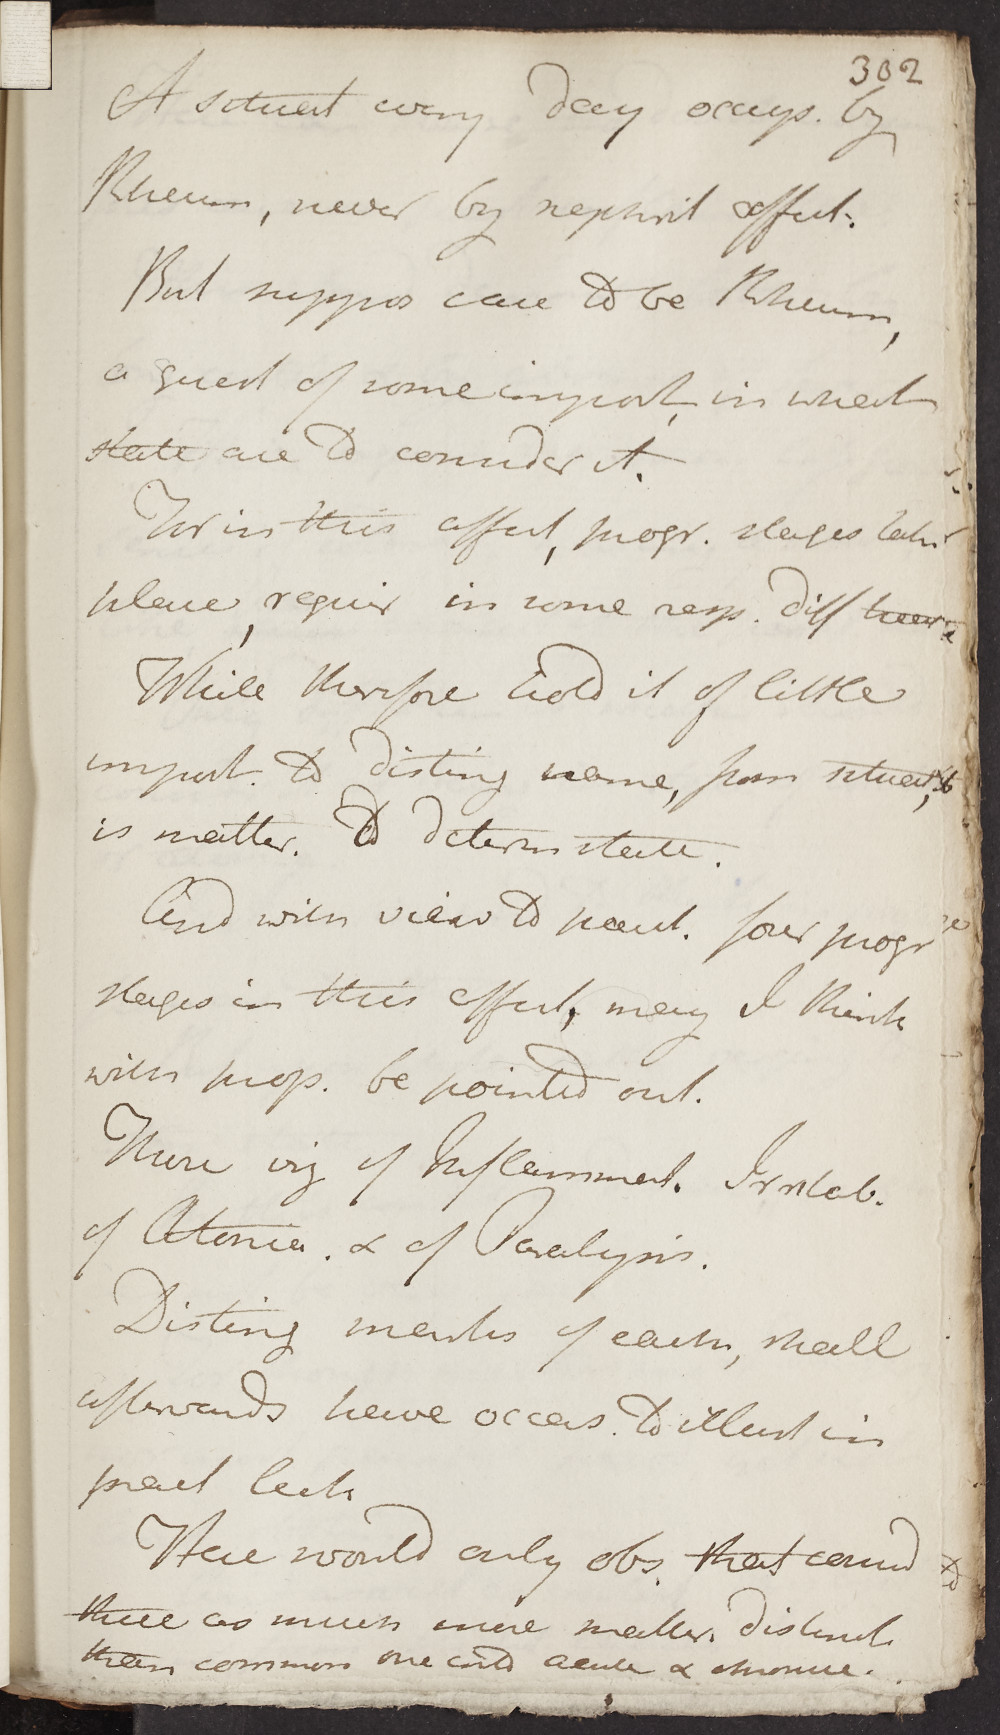 302
A situat every day occup. by
Rheum, never by nephrit affect.
But suppos case to be Rheum,
a quest of some import, in what
state are to consider it.
For in this affect, progr. stages take
place, requir in some resp. diff
While therefore hold it of little
import. to disting name, from situat,
is matter. to determ state.
And with view to pract. four progr
stages in this affect, may I think
with prop. be pointed out.
These viz of Inflammat. Irritab.
of Atonia. & of Paralysis.
Disting marks of each, shall
afterwards have occas. to illust in
pract lect.
Here would only obs. that consid
these as much more mater. distinct.
than common one into acute & chronic.